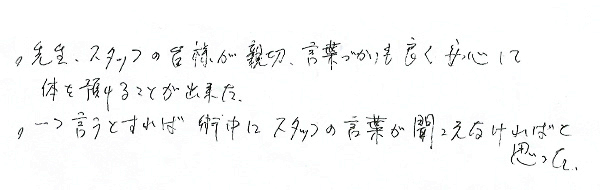 〃先生、スタッフの皆様が親切、言葉づかいも良く安心して
体を預けることが出来た。
〃一つ言うとすれば術中にスタッフの言葉が聞こえなければと
思った。